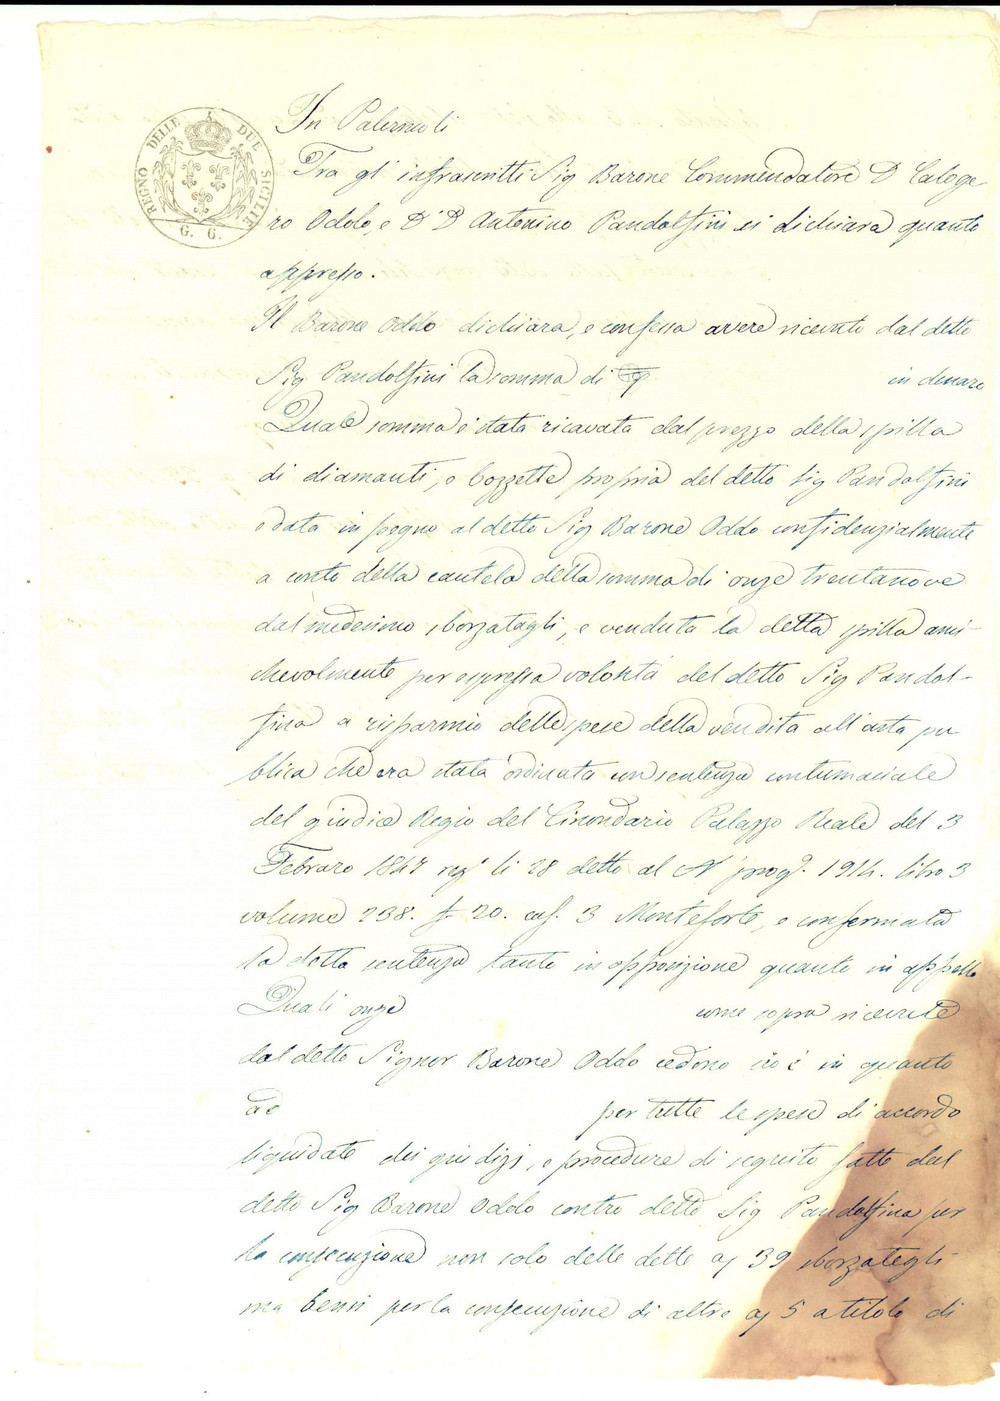 REGNO DELLE DUE SICILIE
G. G.
In Palermo li
Tra gl' infrascritti Sig Barone Commendatore D Caloge
ro Oddo, e D. D Antonino Pandolfini si dichiara quanto
appresso.
Il Barone Oddo dichiara, e confessa avere ricevuto dal detto
Sig Pandolfini la somma di in denaro
Quale somma è stata ricavata dal prezzo della spilla
di diamanti, e bozzette propria del detto Sig Pandolfini
e data in pegno al detto Sig Barone Oddo confidenzialmente
a conto della cautela della somma di onze trentanove
dal medesimo sborzatagli, e venduta la detta spilla ami-
chevolmente per espressa volontà del detto Sig Pandol-
fina a risparmio delle spese della vendita all'asta pu
blica che era stata ordinata con sentenza contumaciale
del giudice Regio del Circondario Palazzo Reale del 3
Febraro 1847 reg.to li 28 detto al N° prog. 1914. libro 3
volume 238. f. 20. cas. 3 Monteforte, e confermata
la detta sentenza tanto in opposizione quanto in appello
Quali onze come sopra ricevute
dal detto Signor Barone Oddo cedono cioè in quanto
ad per tutte le spese di accordo
liquidate dei giudizj, e procedure di seguito fatte dal
detto Sig Barone Oddo contro detto Sig Pandolfina per
la consecuzione non solo delle dette 39 sborzategli
ma bensi per la consecuzione di altre 5 a titolo di